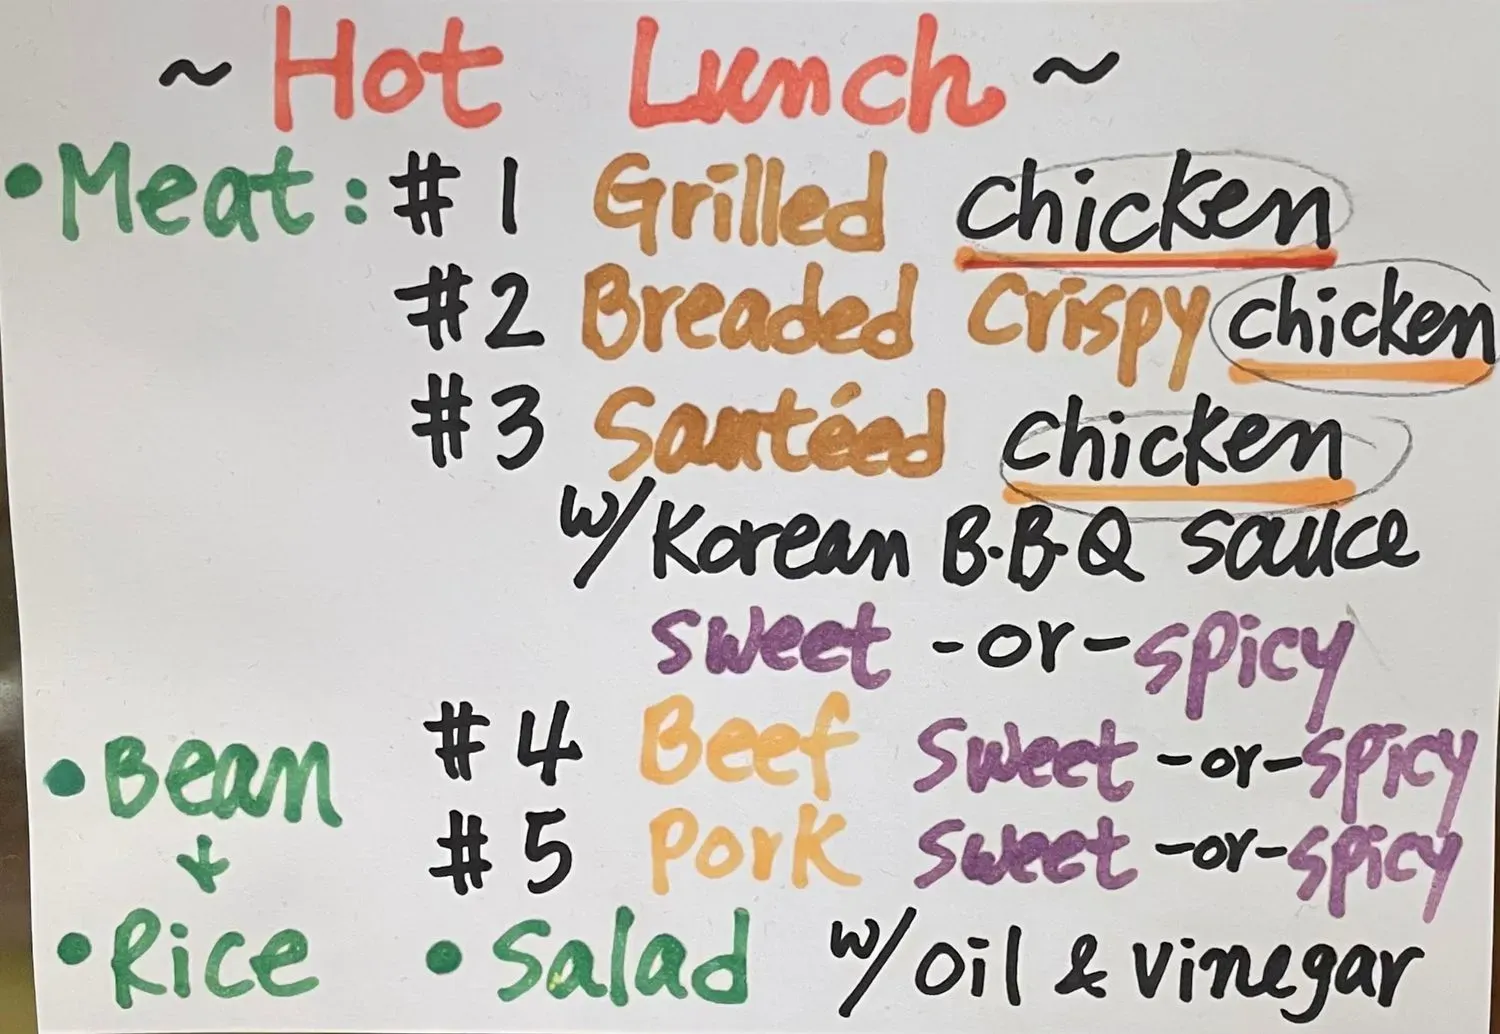 ~ Hot Lunch ~
• Meat: #1 Grilled chicken
#2 Breaded Crispy chicken
#3 Sautéed chicken
w/ Korean B.B.Q sauce
sweet -or- spicy
#4 Beef sweet -or- spicy
• Bean
+
#5 Pork sweet -or- spicy
• Rice • Salad w/ oil & vinegar